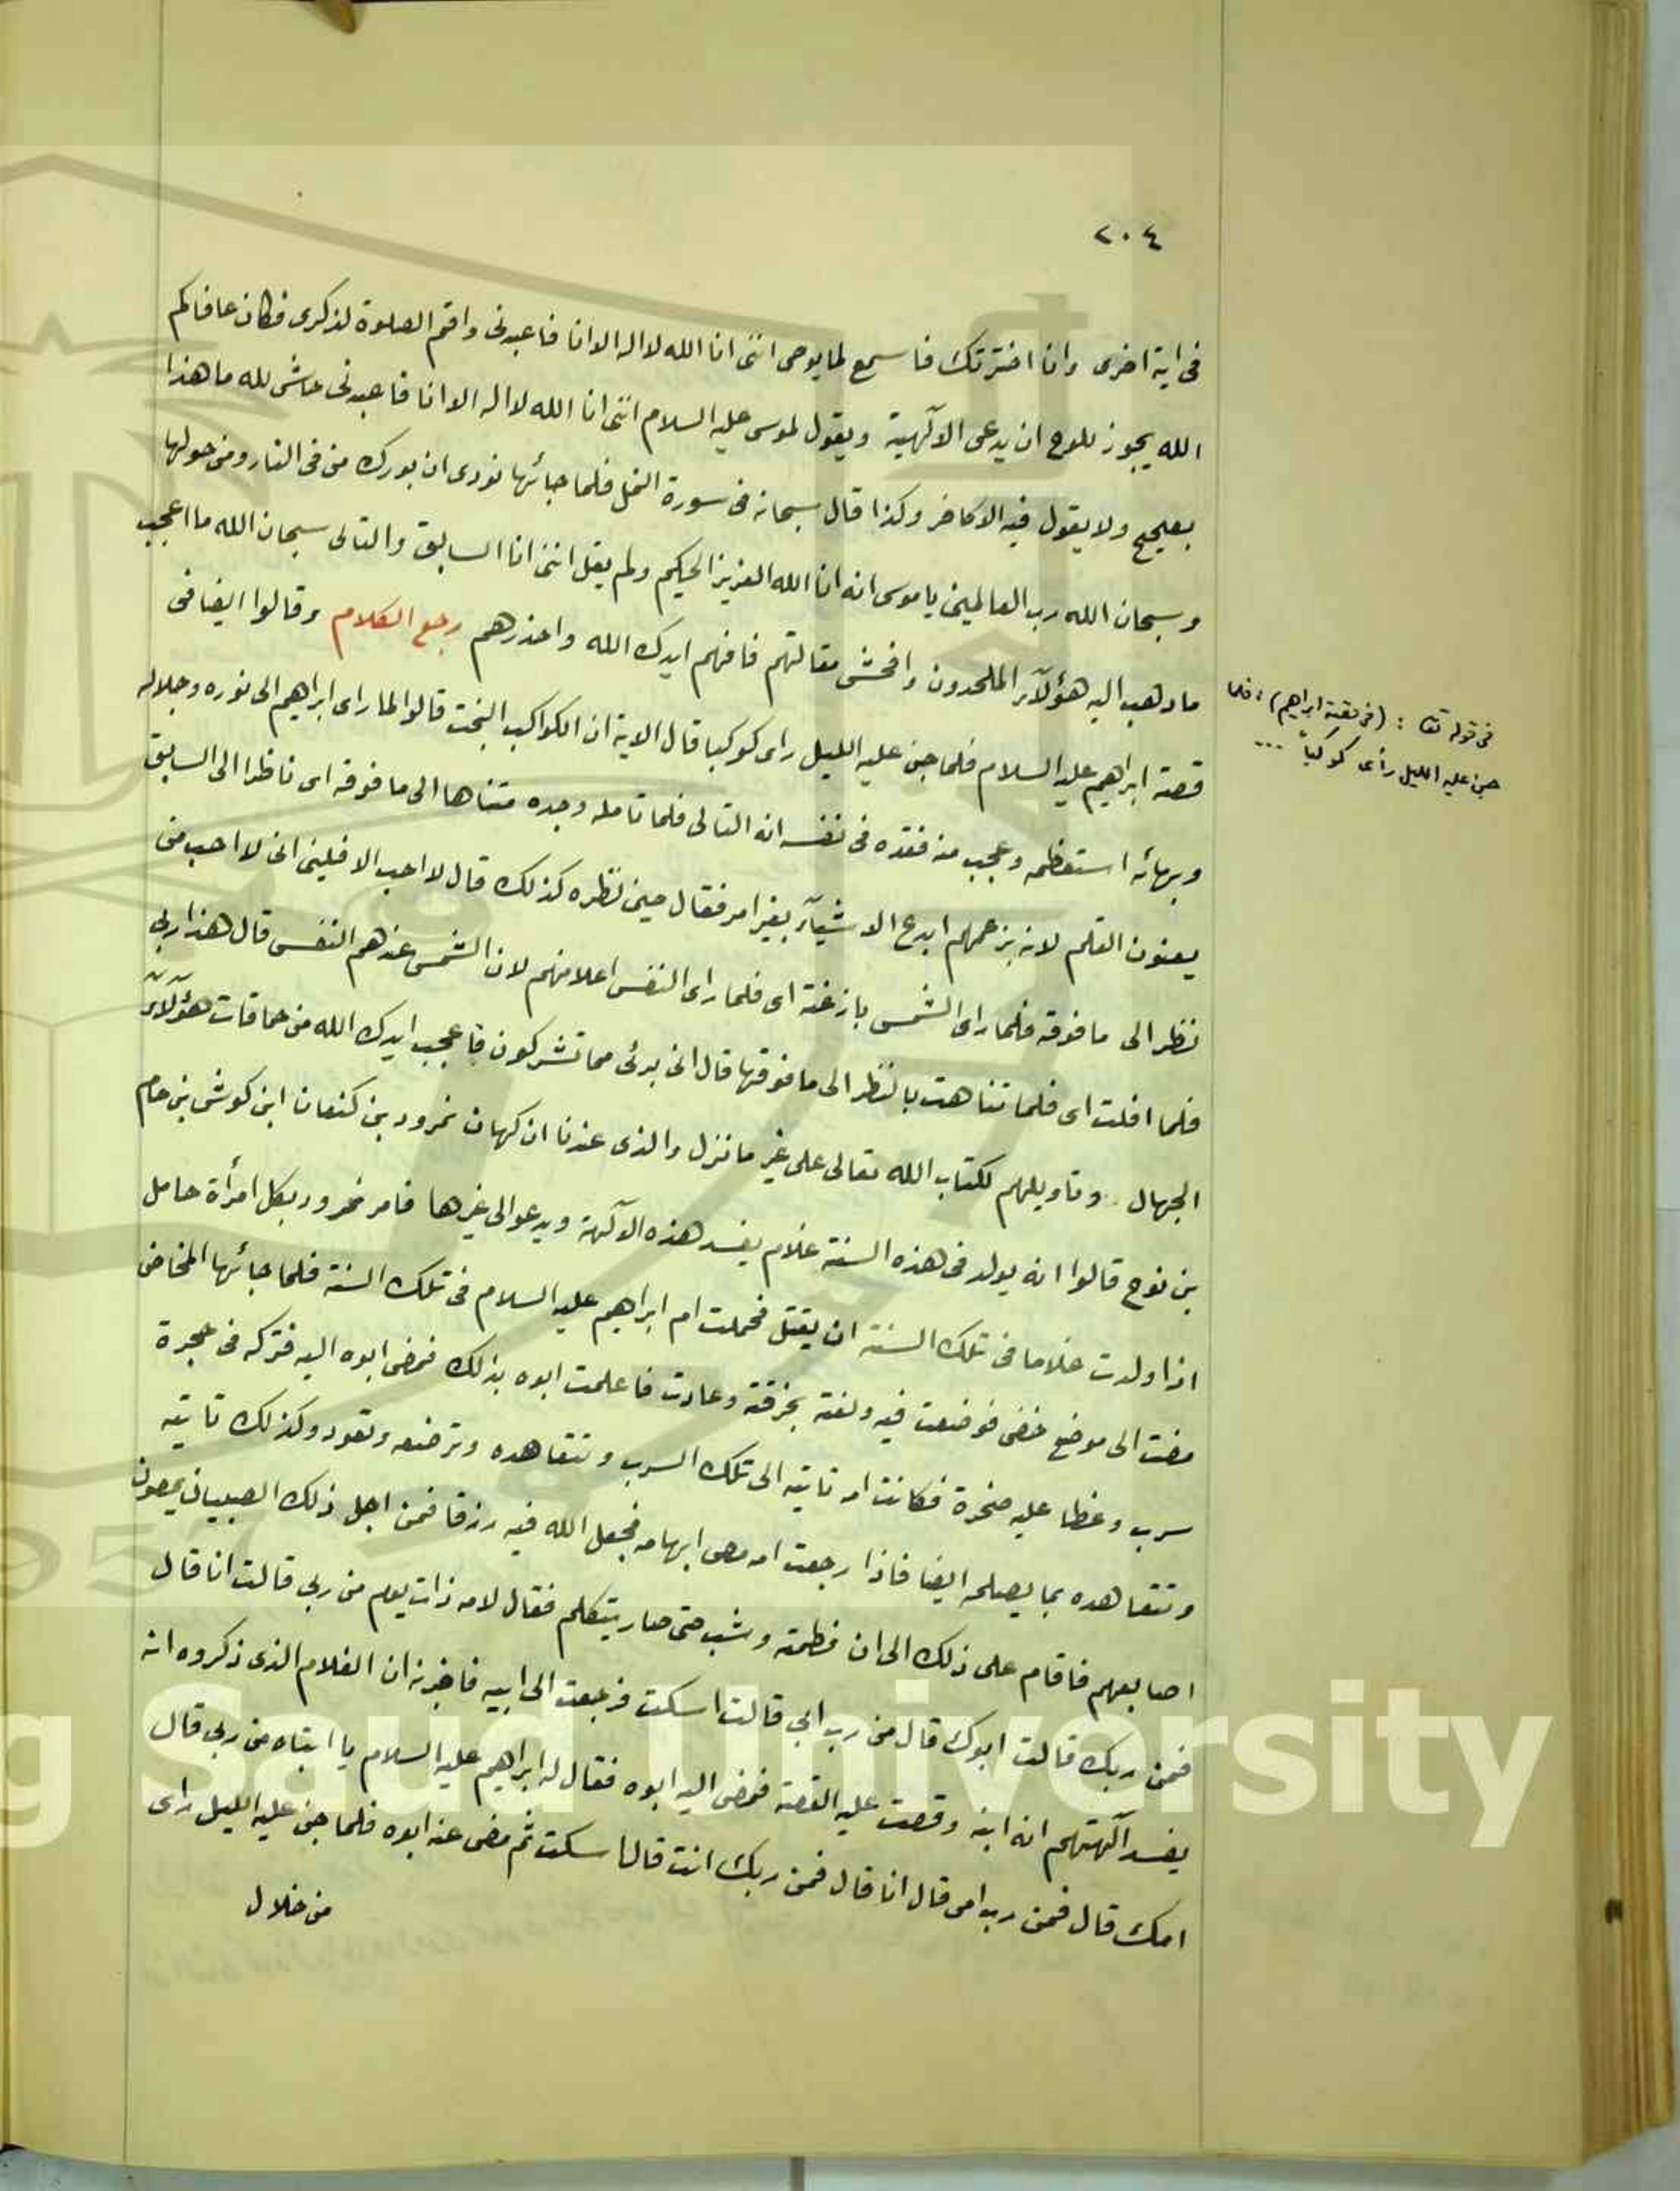 ٢٠٤
فى اية اخرى وانا اخترتك فاسمع لما يوحى اننى انا الله لا اله الا انا فاعبدنى واقم الصلوة لذكرى فكان عافاكم
الله يجوز للوح ان يدعى الآلهية ويقول لموسى عليه السلام اننى انا الله لا اله الا انا فاعبدنى حاشى لله ما هذا
بصحيح ولا يقول فيه الا كافر وكذا قال سبحانه فى سورة النمل فلما جائها نودى ان بورك من فى النار ومن حولها
وسبحان الله رب العالمين يا موسى انه انا الله العزيز الحكيم ولم يقل اننى انا السابق والتالى سبحان الله ما اعجب
ما ذهب اليه هؤلآء الملحدون وافحش مقالتهم فافهم ايدك الله واحذرهم رجع الكلام وقالوا ايضا فى
قصة ابراهيم عليه السلام فلما جن عليه الليل راى كوكبا قال الاية ان الكواكب البخت قالوا لما راى ابراهيم الى نوره وجلاله
وبهائه استعظمه وعجب منه فقده فى نفسه انه التالى فلما تامله وجده متناها الى ما فوقه اى ناظرا الى السابق
يعنون القلم لانه بزعمهم ابدع الاشيآء بغير امر فقال حين نظره كذلك قال لا احب الافلين انى لا احب من
نظر الى ما فوقه فلما راى الشمس بازغة اى فلما راى النفس اعلا منهم لان الشمس عندهم النفس قال هذا ربى
فلما افلت اى فلما تناهت بالنظر الى ما فوقها قال انى برئى مما تشركون فاعجب ايدك الله من حماقات هؤلآء
الجهال وتاويلهم لكتاب الله تعالى على غير ما نزل والذى عندنا ان كهان نمرود بن كنعان ابن كوش بن حام
بن نوح قالوا انه يولد فى هذه السنة غلام يفسد هذه الآلهة ويدعو الى غيرها فامر نمرود بكل امرأة حامل
اذا ولدت غلاما فى تلك السنة ان يقتل فحملت ام ابراهيم عليه السلام فى تلك السنة فلما جائها المخاض
مضت الى موضع خفى فوضعت فيه ولفته بخرقة وعادت فاعلمت ابوه بذلك فمضى ابوه اليه فتركه فى حجرة
سرب وغطا عليه صخرة فكانت امه تاتيه الى تلك السرب وتتعاهده وترضعه وتعود وكذلك تاتيه
وتتعاهده بما يصلحه ايضا فاذا رجعت امه مص ابهامه فجعل الله فيه رزقا فمن اجل ذلك الصبيان يمصون
اصابعهم فاقام على ذلك الى ان فطمته وشب حتى صار يتكلم فقال لامه ذات يوم من ربى قالت انا قال
فمن ربك قالت ابوك قال من رب ابى قالت اسكت فرجعت الى ابيه فاخبرته ان الغلام الذى ذكروه انه
يفسد آلهتهم انه ابنه وقصت عليه القصة فمضى اليه ابوه فقال له ابراهيم عليه السلام يا ابتاه من ربى قال
امك قال فمن رب امى قال انا قال فمن ربك انت قال اسكت ثم مضى عنه ابوه فلما جن عليه الليل راى
من خلال
فى قوله تعا : (فى قصة ابراهيم) : فلما
جن عليه الليل رأى كوكباً ...
g Saud University
1957